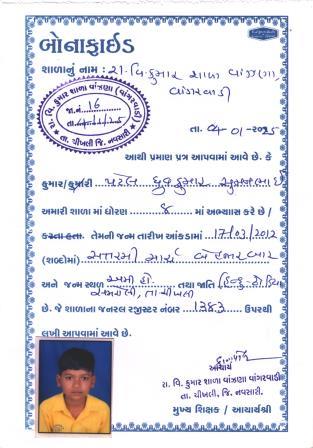 બોનાફાઈડ
શાળાનું નામ : રા. વિ. કુમાર શાળા વાંઝણા,
વાંગરવાડી
રા. વિ. કુમાર શાળા વાંઝણા (વાંગરવાડી)
જા.નં. 16
તા.
તા. ચીખલી જિ. નવસારી.
તા. 04-01-
આથી પ્રમાણ પત્ર આપવામાં આવે છે. કે
કુમાર/કુમારી પટેલ ધ્રુવકુમાર
અમારી શાળા માં ધોરણ ૪ માં અભ્યાસ કરે છે /
કરતા હતા. તેમની જન્મ તારીખ આંકડામાં 17/03/2012
(શબ્દોમાં) સત્તરમી માર્ચ બે હજાર બાર
અને જન્મ સ્થળ તથા જાતિ હિન્દુ-
તા. ચીખલી
છે. જે શાળાના જનરલ રજીસ્ટર નંબર 1383 ઉપરથી
લખી આપવામાં આવે છે.
આચાર્ય
રા. વિ. કુમાર શાળા વાંઝણા વાંગરવાડી
તા. ચીખલી, જિ. નવસારી.
મુખ્ય શિક્ષક / આચાર્યશ્રી